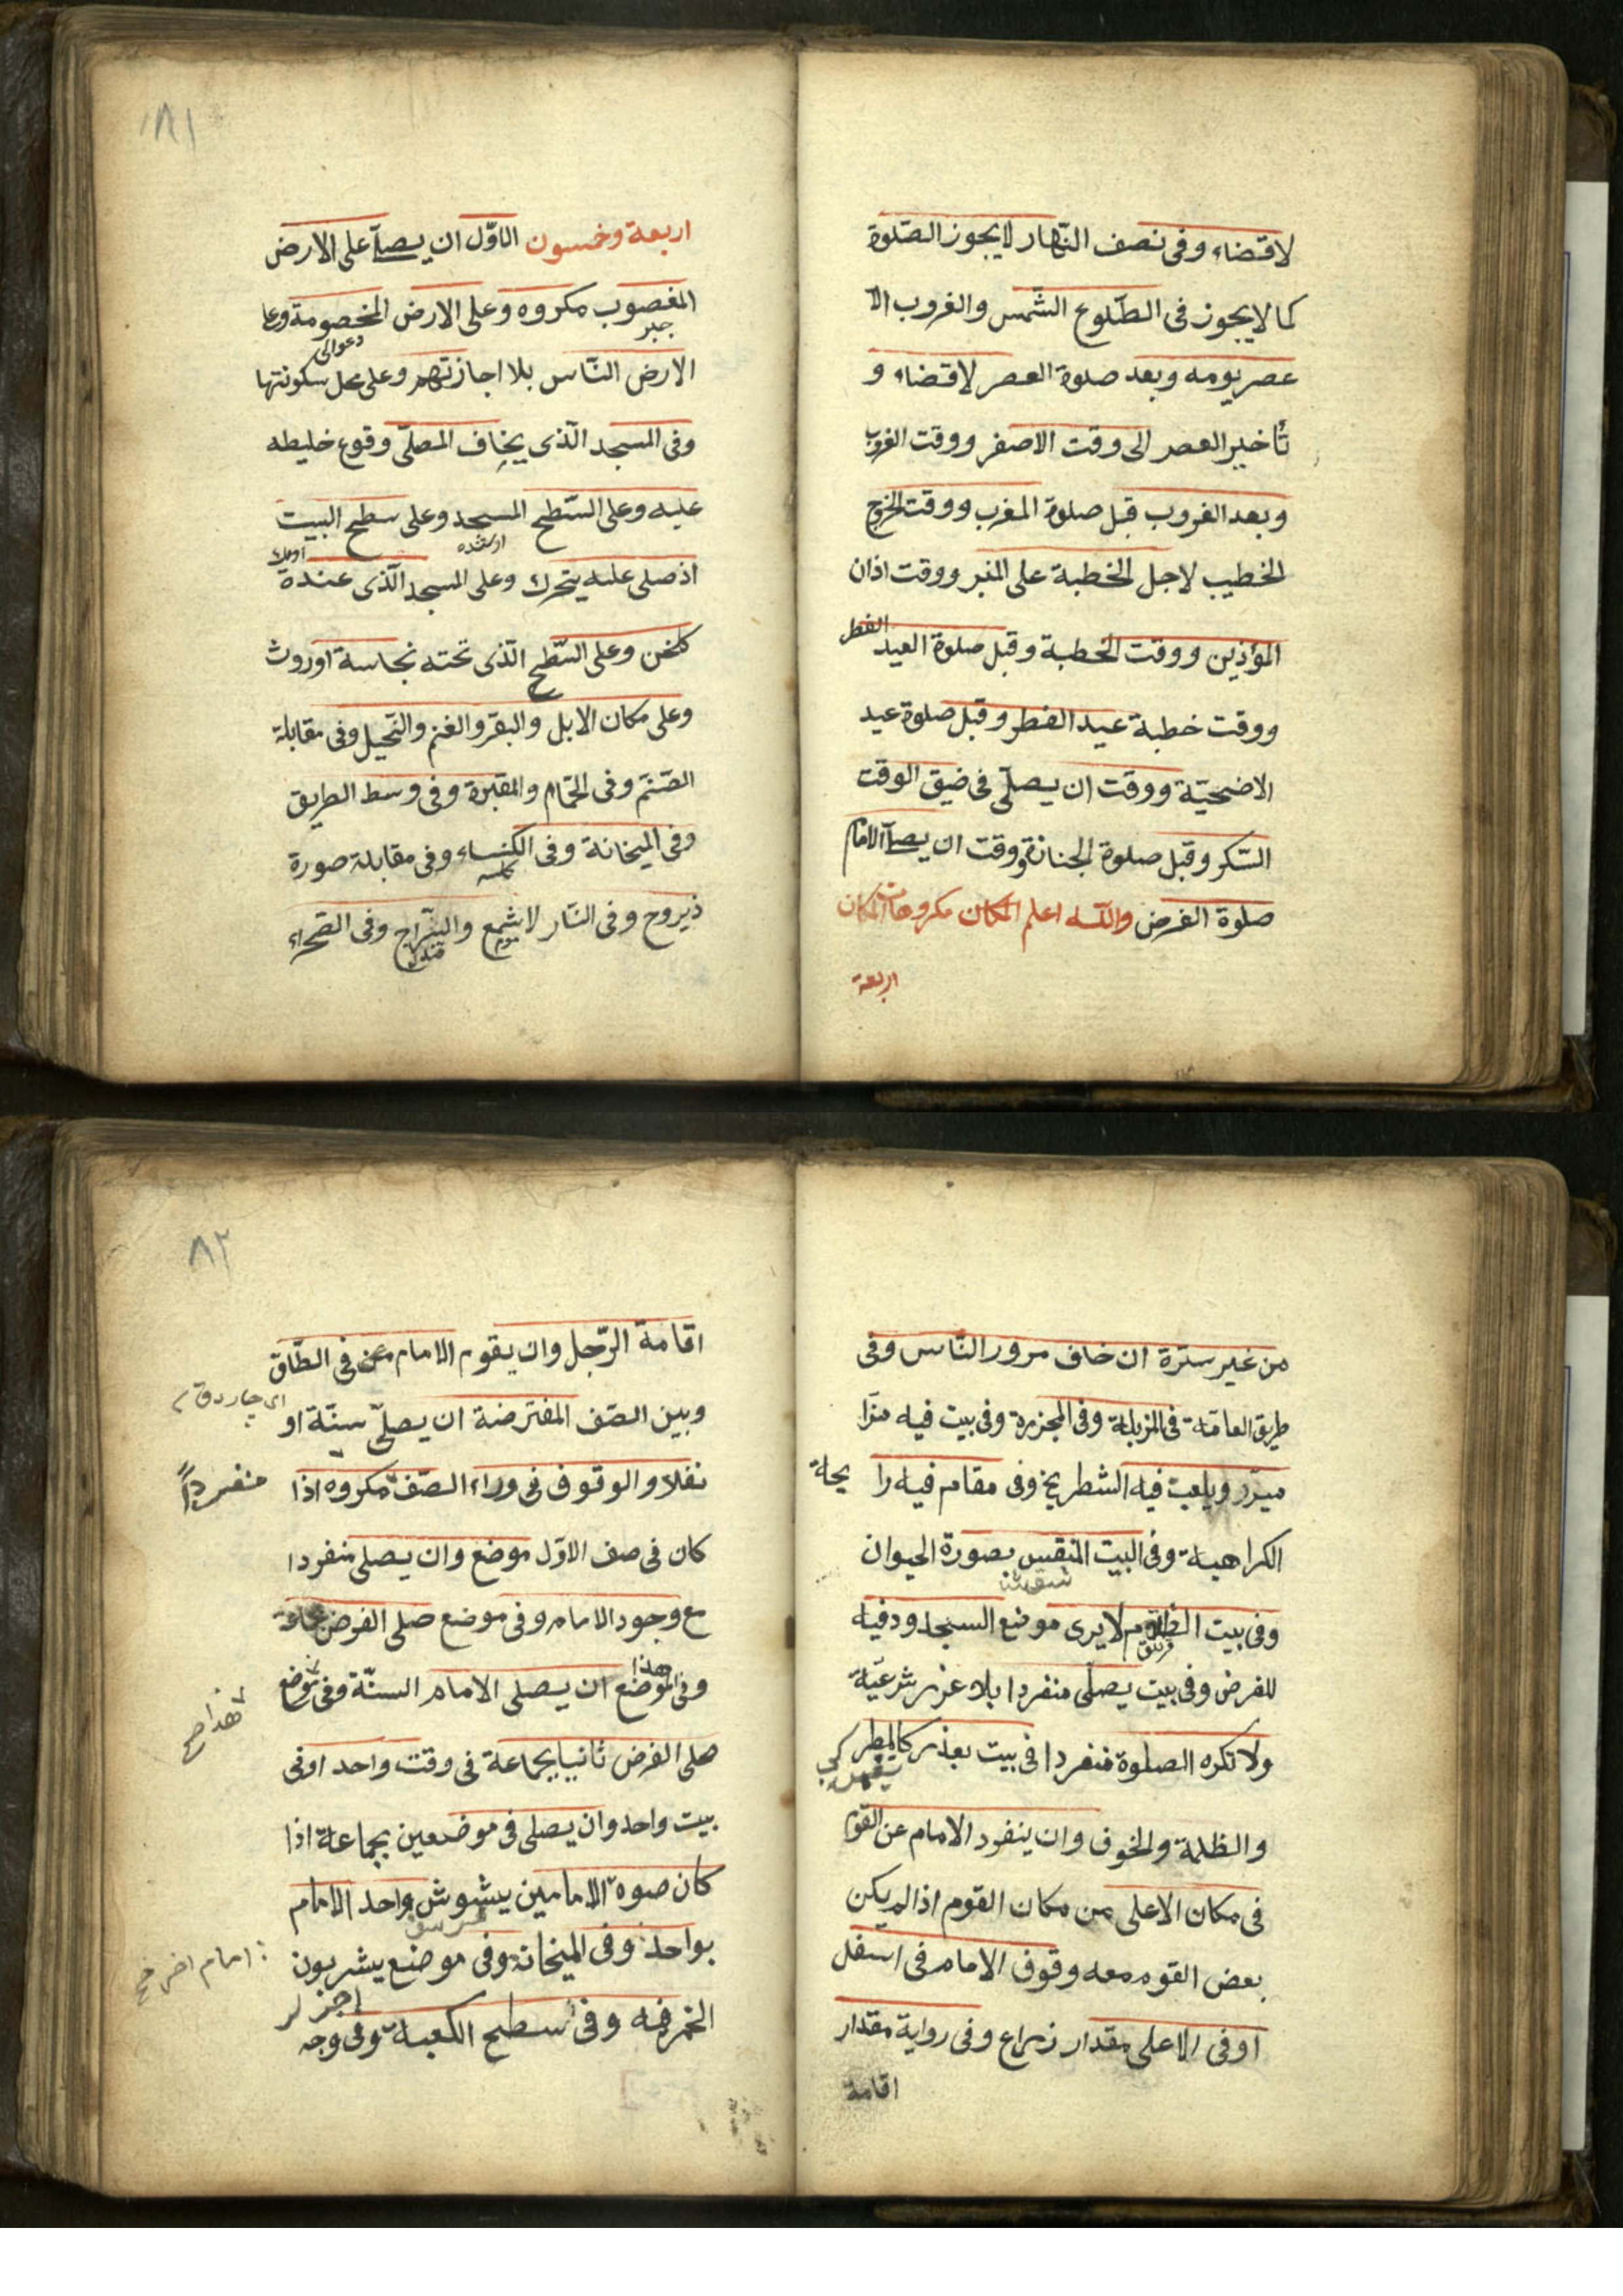 لاقضاء وفى نصف النّهار لايجوز الصّلوة
كما لايجوز فى الطّلوع الشّمس والغروب الّا
عصر يومه وبعد صلوة العصر لاقضاء و
تأخير العصر الى وقت الاصفر ووقت الغروب
وبعد الغروب قبل صلوة المغرب ووقت الخروج
الخطيب لاجل الخطبة على المنبر ووقت اذان
المؤذين ووقت الخطبة وقبل صلوة العيد الفطر
ووقت خطبة عيد الفطر وقبل صلوة عيد
الاضحيّة ووقت ان يصلّى فى ضيق الوقت
السّكر وقبل صلوة الجنازة ووقت ان يصلّى الامام
صلوة الفرض واللّه اعلم المكان مكروهات المكان
اربعة
٨١
اربعة وخمسون الاوّل ان يصلّى على الارض
المغصوب مكروه وعلى الارض المخصومة وعلى
جبر
دعوالى
الارض النّاس بلا اجازتهم وعلى محل سكونتها
وفى المسجد الّذى يخاف المصلّى وقوع خليطه
عليه وعلى السّطح المسجد وعلى سطح البيت
اذ صلى عليه يتحرك وعلى المسجد الّذى عنده
كلخن وعلى السّطح الّذى تحته نجاسة او روث
وعلى مكان الابل والبقر والغنم والنّحيل وفى مقابلة
الصّنم وفى الحمّام والمقبرة وفى وسط الطريق
وفى الميخانة وفى الكنساء وفى مقابلة صورة
ذيروح وفى النّار لا شمع والسّراج وفى الصّحراء
موم
من غير سترة ان خاف مرور النّاس وفى
طريق العامّة فى المزبلة وفى المجزرة وفى بيت فيه منزا
ميزر ويلعب فيه الشطريخ وفى مقام فيه را يحة
الكراهية وفى البيت المنقس بصورة الحيوان
وفى بيت الظلوم لايرى موضع السجد ودفيه
للفرض وفى بيت يصلّى منفردا بلا عزر شرعيّة
ولا تكره الصلوة منفردا فى بيت بعذر كالمطر
والظلمة والخوف وان ينفرد الامام عن القوم
فى مكان الاعلى من مكان القوم اذا لم يكن
بعض القوم معه وقوف الامام فى اسفل
اوفى الاعلى مقدار زراع وفى رواية مقدار
اقامة
٨٢
اقامة الرّجل وان يقوم الامام عن فى الطّاق
وبين الصّف المفترضة ان يصلّى سنّة او
نفلا والوقوف فى وراء الصّف مكروه اذا
منفردًا
كان فى صف الاوّل موضع وان يصلى منفردا
مع وجود الامام وفى موضع صلى الفرض
وفى هذا الموضع ان يصلى الامام السنّة وفى موضع
صلى الفرض ثانيا بجماعة فى وقت واحد اوفى
بيت واحد وان يصلى فى موضعين بجماعة اذا
كان صوة الامامين يشوش واحد الامام
بواحد وفى الميخانة وفى موضع يشربون
الخمر فيه وفى سطح الكعبة وفى وجه